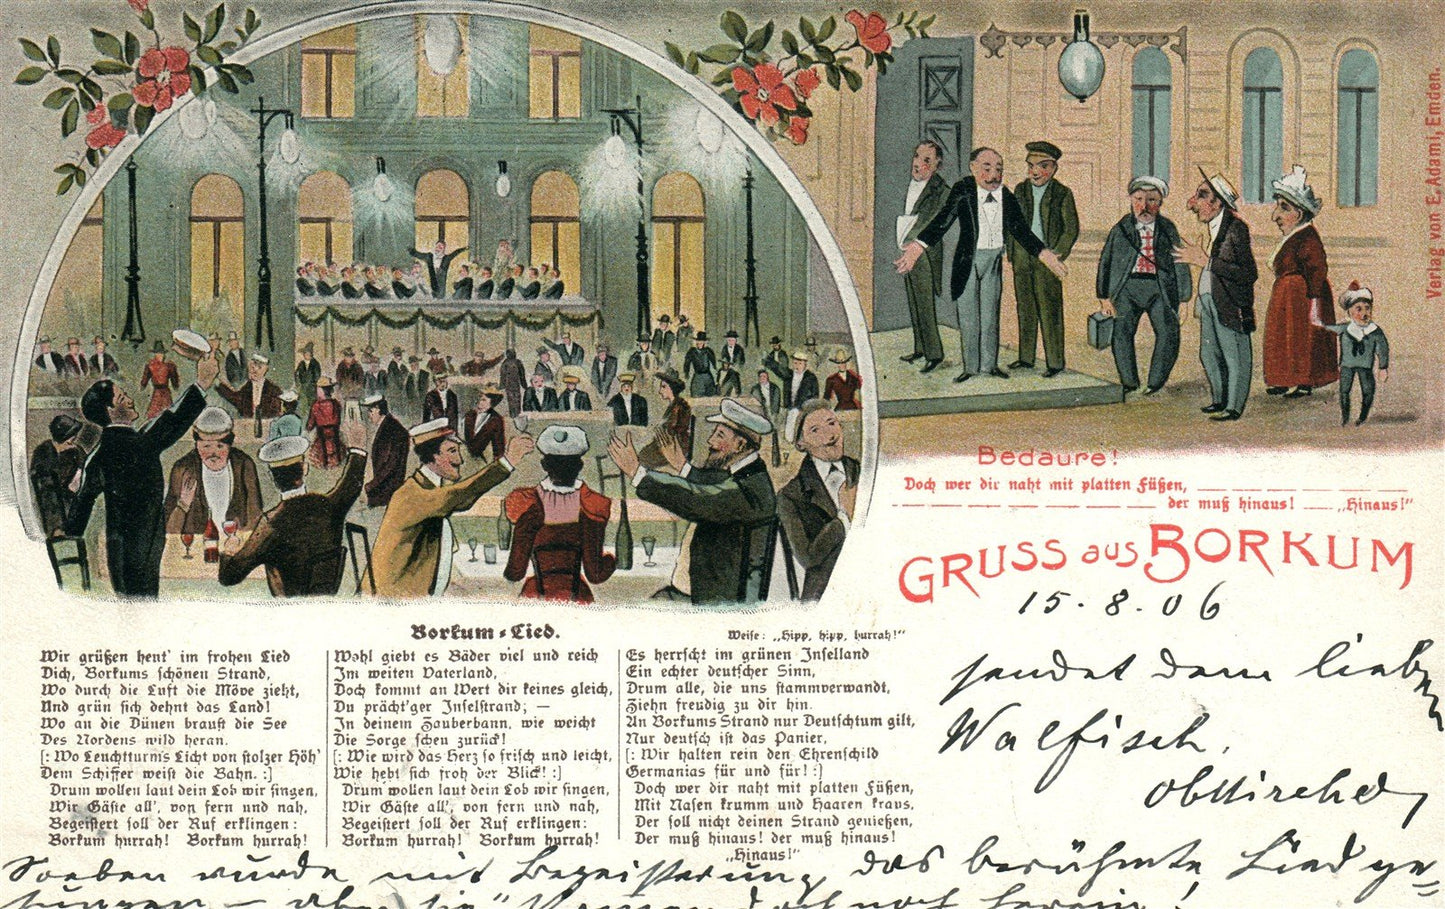 Verlag von E. Adami, Emden.
Bedaure!
Doch wer dir naht mit platten Füßen,
der muß hinaus! „Hinaus!"
GRUSS aus BORKUM
15. 8. 06
sendet dem lieben
Walfisch,
Borkum-Lied.
Weise: „Hipp, hipp, hurrah!"
Wir grüßen heut' im frohen Lied
Dich, Borkums schönen Strand,
Wo durch die Luft die Möve zieht,
Und grün sich dehnt das Land!
Wo an die Dünen braust die See
Des Nordens wild heran.
[: Wo Leuchtturms Licht von stolzer Höh'
Dem Schiffer weist die Bahn. :]
Drum wollen laut dein Lob wir singen,
Wir Gäste all', von fern und nah,
Begeistert soll der Ruf erklingen:
Borkum hurrah! Borkum hurrah!
Wohl giebt es Bäder viel und reich
Im weiten Vaterland,
Doch kommt an Wert dir keines gleich,
Du prächt'ger Inselstrand; —
In deinem Zauberbann, wie weicht
Die Sorge scheu zurück!
[: Wie wird das Herz so frisch und leicht,
Wie hebt sich froh der Blick! :]
Drum wollen laut dein Lob wir singen,
Wir Gäste all', von fern und nah,
Begeistert soll der Ruf erklingen:
Borkum hurrah! Borkum hurrah!
Es herrscht im grünen Inselland
Ein echter deutscher Sinn,
Drum alle, die uns stammverwandt,
Ziehn freudig zu dir hin.
An Borkums Strand nur Deutschtum gilt,
Nur deutsch ist das Panier,
[: Wir halten rein den Ehrenschild
Germanias für und für! :]
Doch wer dir naht mit platten Füßen,
Mit Nasen krumm und Haaren kraus,
Der soll nicht deinen Strand genießen,
Der muß hinaus! der muß hinaus!
„Hinaus!"
Soeben wurde mit Begeisterung das berühmte Lied ge=
sungen — aber doch noch herein!